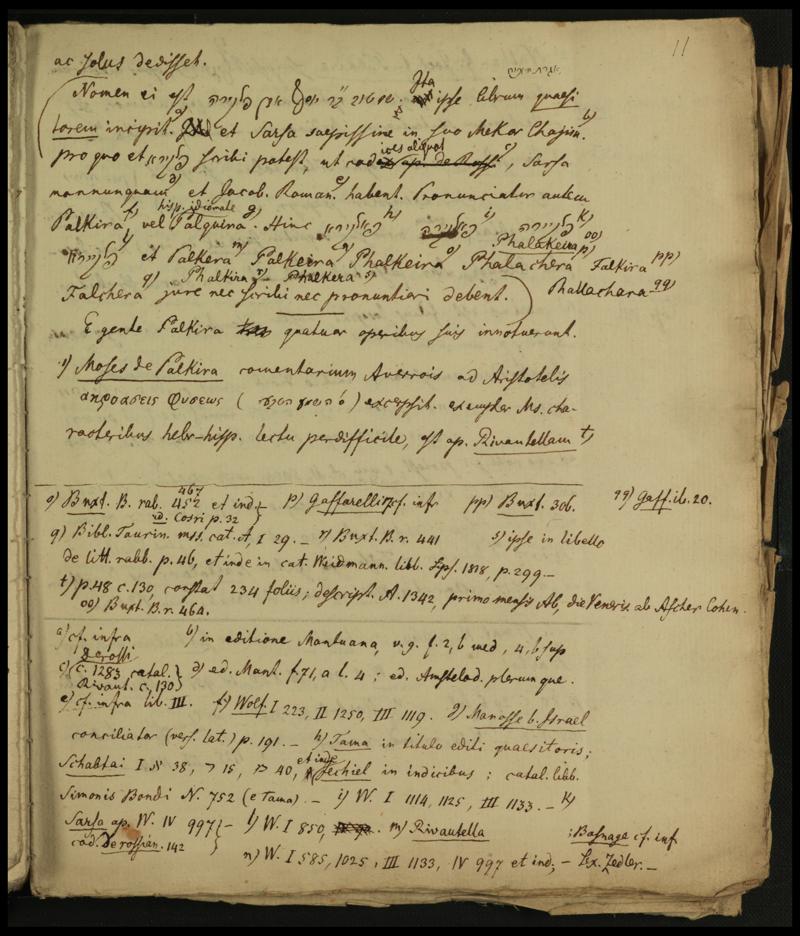 11
ac solus dedisset.
Nomen ei est שם טוב בר יוסף אבן פלקירה. Ita ipse librum quaesi
torem incipit. a) et Sarsa saepissime in suo Mekor Chajim. b)
pro quo et פלקירא scribi potest, ut codices aliquot c), Sarsa
nonnunquam d) et Jacob. Roman. e) habent. Pronunciatur autem
Palkira f) vel hisp. idionale Palquira g). Hinc h) i) פלקיירה k)
l) et Palkera m) Palkeira n) Phalkeira o) Phalakeira oo) Phalachera p) Falkira pp)
Falchera q) Phalkira r) Phalkera s) jure nec scribi nec pronuntiari debent. Phallachara qq)
E gente Palkira quatuor operibus suis innotuerunt.
1) Moses de Palkira comentarium Averrois ad Aristotelis
ακροασεις Φυσεως ( ) excripsit. exemplar Ms. cha-
racteribus hebr-hisp. lectu perdifficile, est ap. Rivautellam t)
o) Buxt. B. rab. 452 467 et ind. id. Cosri p. 32 p) Gaffarelli cf. infr pp) Buxt. 306. qq) Gaff. ib. 20.
q) Bibl. Taurin. mss. cat. A, I 29. – r) Buxt. B. r. 441 s) ipse in libello
de litt. rabb. p. 46, et inde in cat. Weidmann. libb. Lps. 1818, p. 299. –
t) p. 48 c. 130, constat 234 foliis; descript. A. 1342, primo mensis Ab, die Veneris ab Ascher Cohen.
oo) Buxt. B. r. 464.
a) cf. infra b) in editione Mantuana, v. g. f. 2, b med, 4, b sup
c) Derossi c. 1283 catal. Rivaut. c. 130 d) ed. Mant. f. 71, a l. 4; ed. Amstelod. plerumque.
e) cf. infra lib. III. f) Wolf. I 223, II 1250, III 1119. g) Manasse b. Israel
conciliator (vers. lat.) p. 191. – h) Tama in titulo editi quaesitoris;
Schabtai I № 38, ר 15, מ 40, et inde Jechiel in indicibus; catal. libb.
Simonis Bondi N. 752 (e Tama). – i) W. I 1114, 1125, III 1133. – k)
Sarsa ap. W. IV 997 – l) W. I 850, m) Rivautella ; Basnage cf. inf
cod. Derossian. 142 n) W. I 585, 1025, III 1133, IV 997 et ind; – Lex. Zedler. –